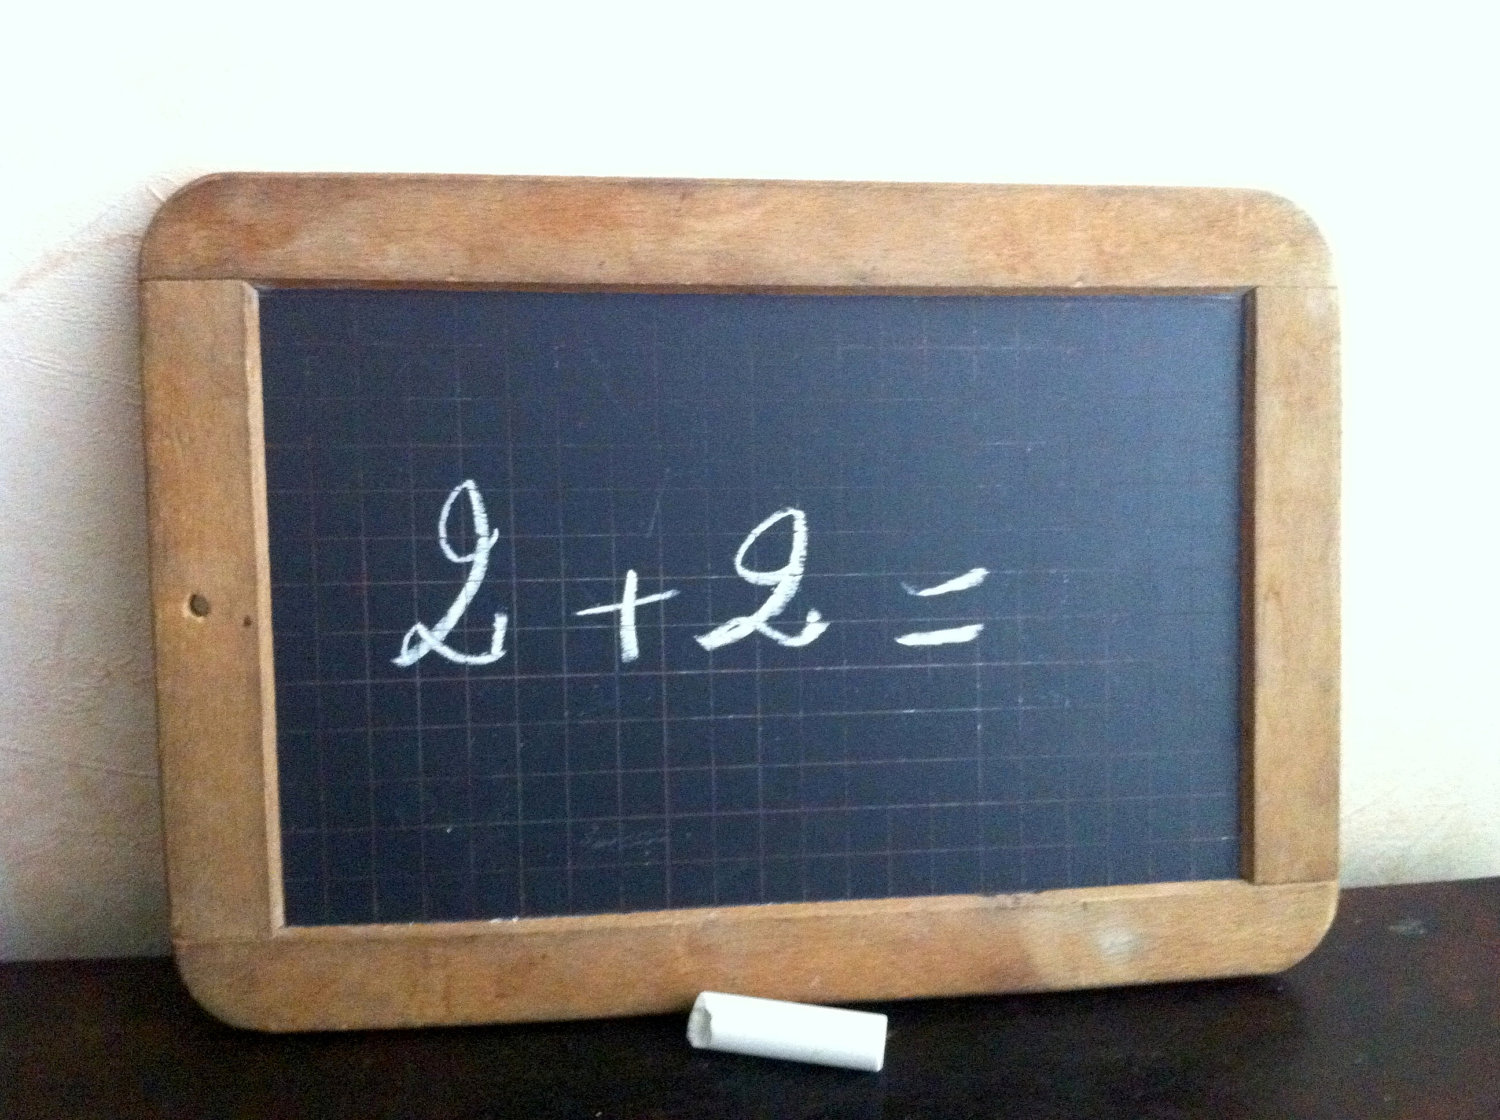 2 + 2 =